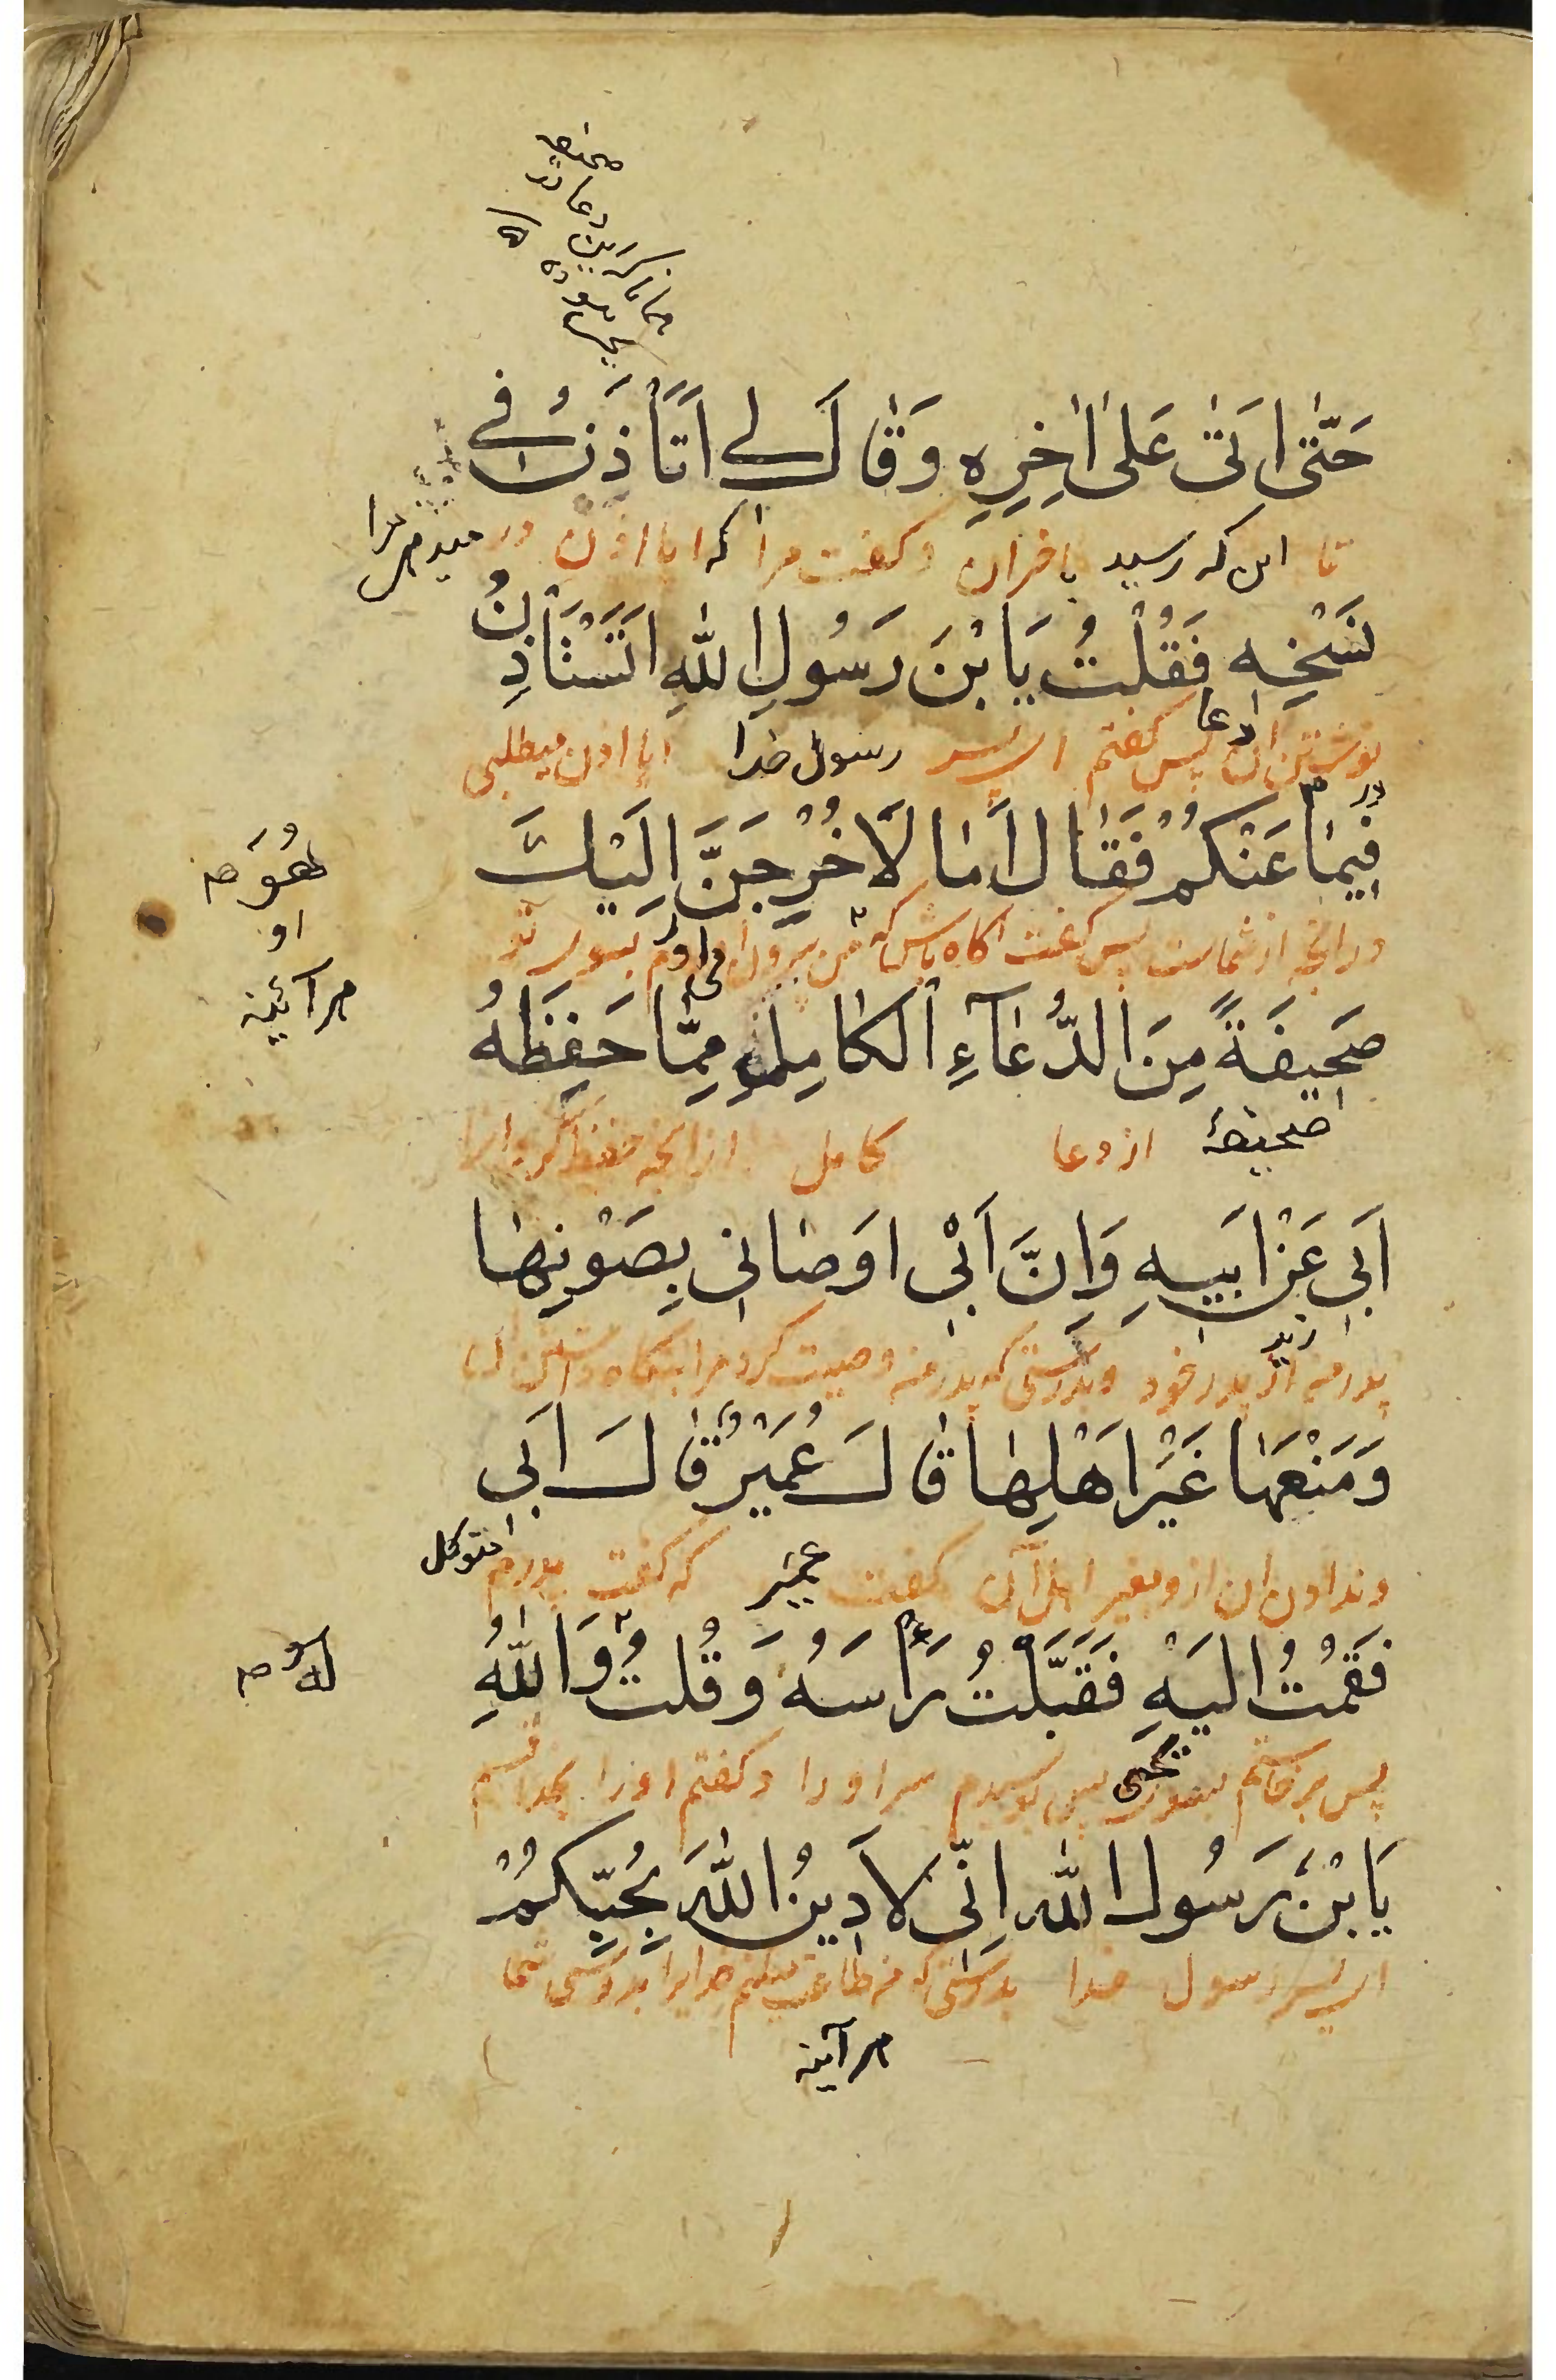 صحیفه
دعا در
حَتّٰى اَتىٰ عَلىٰ اٰخِرِهِ وَقٰالَ لي اَتَأذَنُ في
تا این که رسید باخران و کفت مرا که ایا اذن میدهی مرا در
نَسْخِهِ فَقُلْتُ يَا بْنَ رَسُولِ اللّٰهِ اَتَسْتَأذِنُ
نوشتن ان دعا پس کفتم ای پسر رسول خدا ایا اذن میطلبی
فِيمٰا عَنْكُمْ فَقٰالَ اَمٰا لَاُخْرِجَنَّ اِلَيْكَ
در انچه از شماست پس کفت اکاه باش که من بیرون می اورم بسوی تو
هُوَ صح
او
هر آئینه
صَحِيفَةً مِنَ الدُّعٰآءِ الْكٰامِلِ مِمّٰا حَفِظَهُ
صحیفهٔ از دعا کامل ازانچه حفظ کرد انرا
اَبي عَنْ اَبيهِ وَاِنَّ اَبْي اَوصٰانِي بِصَوْنِهٰا
پدر من زید از پدر خود و بدرستی که پدر من وصیت کرد مرا بنکاه داشتن ان
وَمَنْعِهٰا غَيْرَ اَهْلِهٰا قٰالَ عُمَيْرٌ قٰالَ اَبي
وندادن ان از و بغیر اهل آن کفت عمیر که کفت پدرم متوکل
فَقُمْتُ اِلَيْهِ فَقَبَّلْتُ رَأسَهُ وَقُلتُ وَاللّٰهِ
لهُ صح
پس برخاستم بسوی یحیی پس بوسیدم سر او را و کفتم او را بخدا قسم
يَا بْنَ رَسُولِ اللّٰهِ اِنّي لَاَدِينُ اللّٰهَ بِحُبِّكُمْ
ای پسر رسول خدا بدرستی که من طاعت میکنم خدایرا بدوستی شما
هر آینه